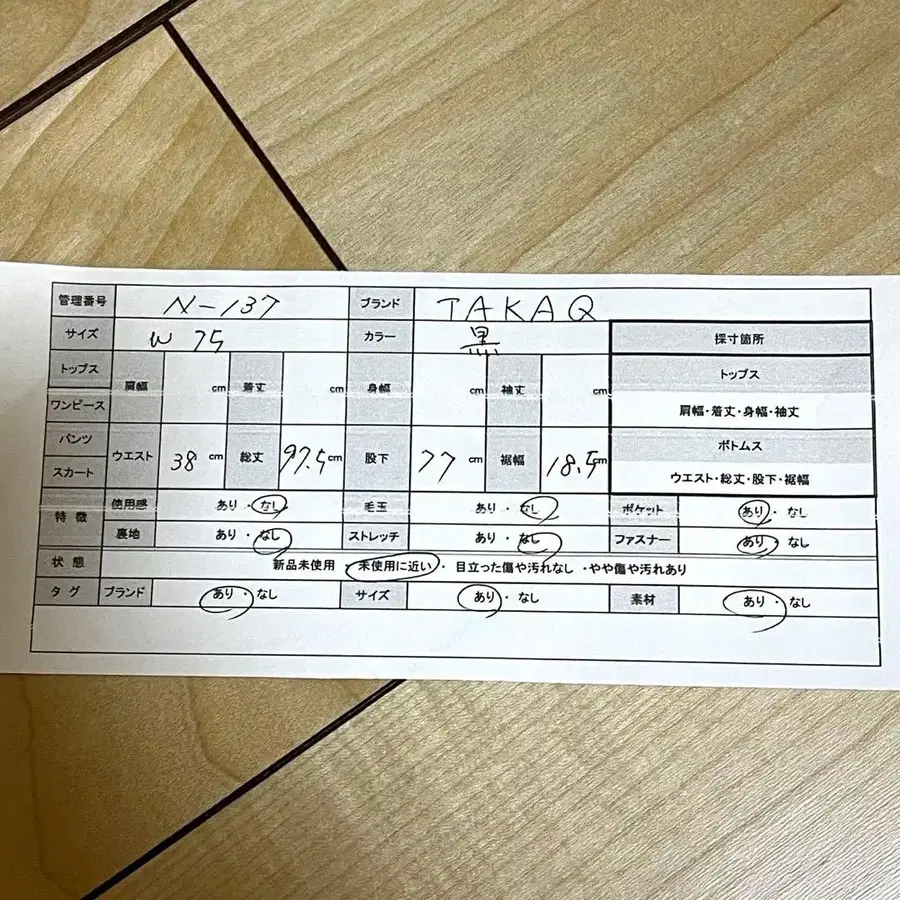 管理番号 N-137 ブランド TAKAQ
サイズ W 75 カラー 黒 採寸箇所
トップス 肩幅 cm 着丈 cm 身幅 cm 袖丈 cm トップス
ワンピース 肩幅・着丈・身幅・袖丈
パンツ ウエスト 38 cm 総丈 97.5 cm 股下 77 cm 裾幅 18.5 cm ボトムス
スカート ウエスト・総丈・股下・裾幅
特徴 使用感 あり・なし 毛玉 あり・なし ポケット あり・なし
裏地 あり・なし ストレッチ あり・なし ファスナー あり・なし
状態 新品未使用・未使用に近い・目立った傷や汚れなし・やや傷や汚れあり
タグ ブランド あり・なし サイズ あり・なし 素材 あり・なし